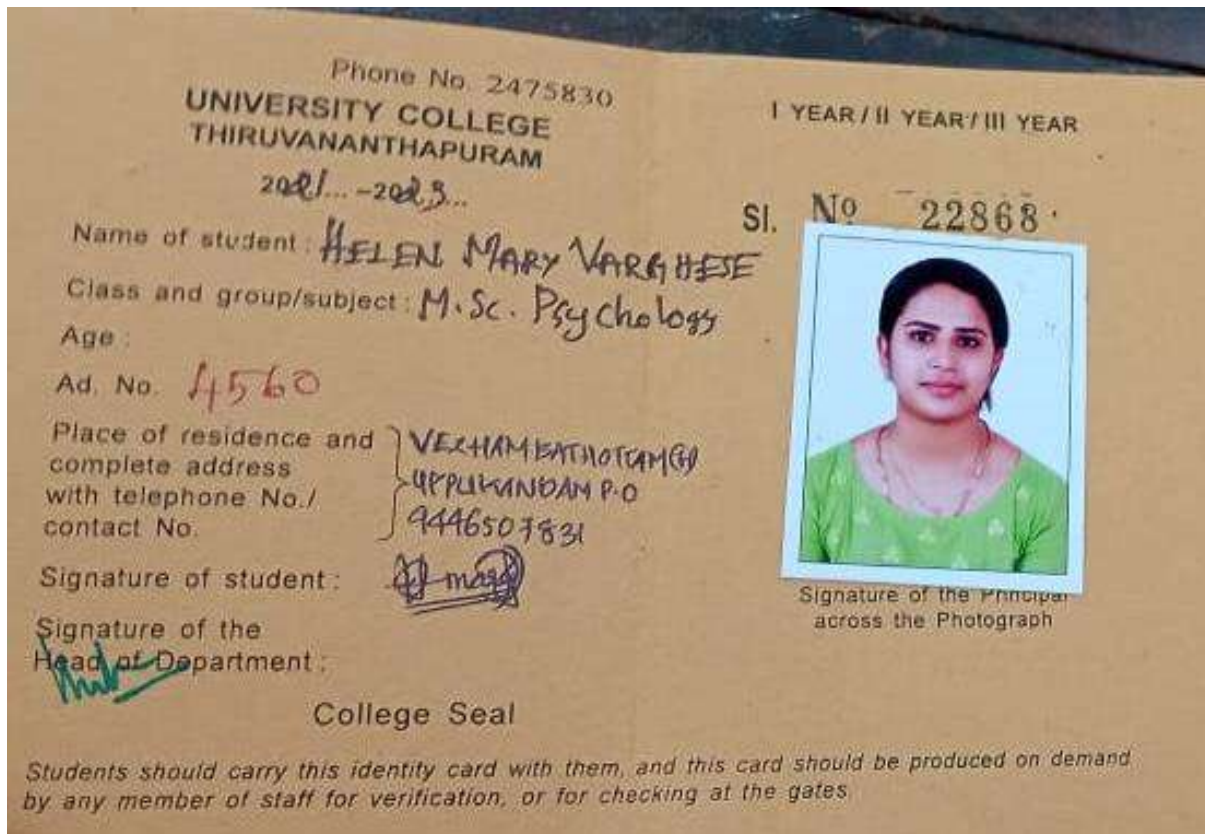 Phone No. 2475830
UNIVERSITY COLLEGE
THIRUVANANTHAPURAM
2021... -2023...
Name of student : HELEN MARY VARGHESE
Class and group/subject : M.Sc. Psychology
Age :
Ad. No. 4560
Place of residence and
complete address
with telephone No./
contact No.
UPPUKANDAM P.O
9446507831
Signature of student :
Signature of the
Head of Department :
College Seal
I YEAR / II YEAR / III YEAR
Sl. No 22868
Signature of the Principal
across the Photograph
Students should carry this identity card with them, and this card should be produced on demand
by any member of staff for verification, or for checking at the gates